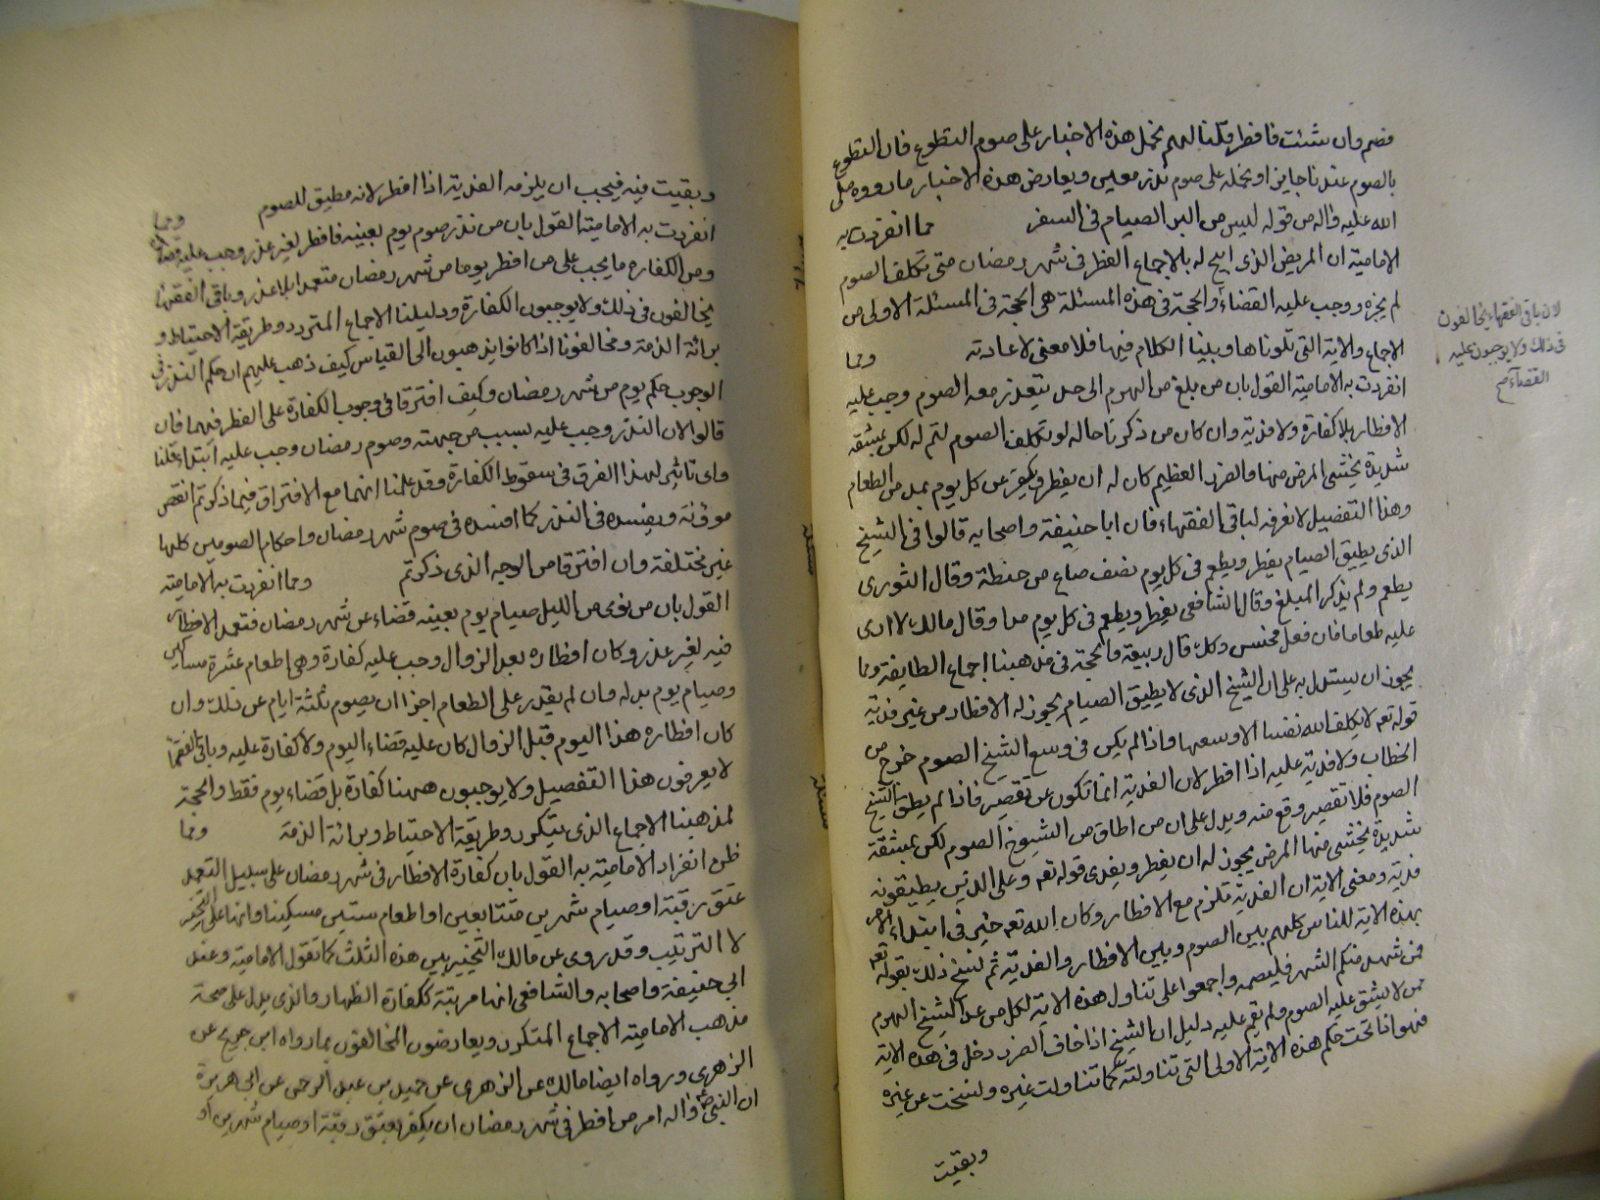 فصم وان شئت فافطر وقلنا لهم نحمل هذه الاخبار على صوم التطوع فان التطوع
بالصوم عندنا جايز او نحمله على صوم نذر معين ويعارض هذه الاخبار ما رووه صلى
الله عليه واله من قوله ليس من البر الصيام فى السفر مما انفردت به
الامامية ان المريض الذى ابيح له بالاجماع الفطر فى شهر رمضان متى تكلف الصوم
لم يجزه ووجب عليه القضاء والحجة فى هذه المسئلة هى الحجة فى المسئلة الاولى من
الاجماع والاية التى تلوناها وبينا الكلام فيها فلا معنى لاعادته ومما
انفردت به الامامية القول بان من بلغ من الهرم الى حد يتعذر معه الصوم وجب عليه
الافطار بلا كفارة ولا فدية وان كان من ذكرنا حاله لو تكلف الصوم لتم له لكن بمشقه
شديدة يخشى المرض منها والضرر العظيم كان له ان يفطر ويكفر عن كل يوم بمد من الطعام
وهذا التفضيل لا نعرفه لباقى الفقهاء فان ابا حنيفة واصحابه قالوا فى الشيخ
الذى لا يطيق الصيام يفطر ويطعم فى كل يوم نصف صاع من حنطة وقال الثورى
يطعم ولم يذكر المبلغ وقال الشافعى يفطر ويطعم فى كل يوم مدا وقال مالك لا ارى
عليه طعاما فان فعل فحسن وكك قال ربيعة والحجة فى مذهبنا اجماع الطايفة ومما
يجوز ان يستدل به على ان الشيخ الذى لا يطيق الصيام يجوز له الافطار من غير فدية
قوله تعه لا يكلف الله نفسا الا وسعها واذا لم يكن فى وسع الشيخ الصوم خرج من
الخطاب ولا فدية عليه اذا افطر لان الفدية انما تكون عن تقصير فاذا لم يطق الشيخ
الصوم فلا تقصير وقع منه ويدل على ان من اطاق من الشيوخ الصوم لكن بمشقة
شديدة يخشى منها المرض يجوز له ان يفطر ويفدى قوله تعه وعلى الذين يطيقونه
فدية ومعنى الاية ان الفدية تلزم مع الافطار وكان الله تعه خير فى ابتداء الامر
بهذه الاية للناس كلهم بين الصوم وبين الافطار والفدية ثم نسخ ذلك بقوله تعه
فمن شهد منكم الشهر فليصمه واجمعوا على تناول هذه الاية لكل من عدا الشيخ الهرم
ممن لا يشق عليه الصوم ولم يقم عليه دليل ان الشيخ اذا خاف الضرر دخل فى هذه الاية
فهو اذا تحت حكم هذه الاية الاولى التى تناولته كما تناولت غيره ولنسخت عن غيره
وبقيت
لان باقى الفقهاء يخالفون
فى ذلك ولا يوجبون عليه
القضاء صح
وبقيت فيه فيجب ان يلزمه الفدية اذا افطر لانه مطيق للصوم ومما
انفردت به الامامية القول بان من نذر صوم يوم بعينه فافطر لغير عذر وجب عليه قضاؤه
ومن الكفارة ما يجب على من افطر يوما من شهر رمضان متعمدا بلا عذر وباقى الفقهاء
يخالفون فى ذلك ولا يوجبون الكفارة ودليلنا الاجماع المتردد وطريقة الاحتياط و
برائة الذمة ومخالفونا اذا كانوا يذهبون الى القياس كيف ذهب عليهم ان حكم النذر فى
الوجوب حكم يوم من شهر رمضان وكيف افترقا فى وجوب الكفارة على الفطر فيهما فان
قالوا لان النذر وجب عليه بسبب من جهته وصوم رمضان وجب عليه ابتداء قلنا
واى تاثير لهذا الفرق فى سقوط الكفارة وقد علمنا انهما مع الافتراق فيما ذكرتم
ويفسده فى النذر كما افسده فى صوم شهر رمضان واحكام الصومين كلها
غير مختلفة وان افترقا من الوجه الذى ذكرتم ومما انفردت به الامامية
القول بان من نوى من الليل صيام يوم بعينه قضاء عن شهر رمضان فتعمد الافطار
فيه لغير عذر وكان افطاره بعد الزوال وجب عليه كفارة وهى اطعام عشرة مساكين
وصيام يوم بدله وان لم يقدر على الطعام اجزاه ان يصوم ثلثة ايام عن ذلك وان
كان افطاره هذا اليوم قبل الزوال كان عليه قضاء اليوم ولا كفارة عليه وباقى الفقهاء
لا يعرفون هذا التفصيل ولا يوجبون ههنا كفارة بل قضاء يوم فقط والحجة
لمذهبنا الاجماع الذى يتكرر وطريقة الاحتياط وبرائة الذمة ومما
ظن انفراد الامامية به القول بان كفارة الافطار فى شهر رمضان على سبيل التعمد
عتق رقبة او صيام شهرين متتابعين او اطعام ستين مسكينا وانها على التخيير
لا الترتيب وقد روى عن مالك التخيير بين هذه الثلث كما تقول الامامية وعند
ابى حنيفة واصحابه والشافعى انها مرتبة ككفارة الظهار والذى يدل على صحة
مذهب الامامية الاجماع المتكرر ويعارضون المخالفون بما رواه ابن جريج عن
الزهرى ورواه ايضا مالك عن الزهرى عن حميد بن عبد الرحمن عن ابى هريرة
ان النبى واله امر من افطر فى شهر رمضان ان يكفر بعتق رقبة او صيام شهرين او